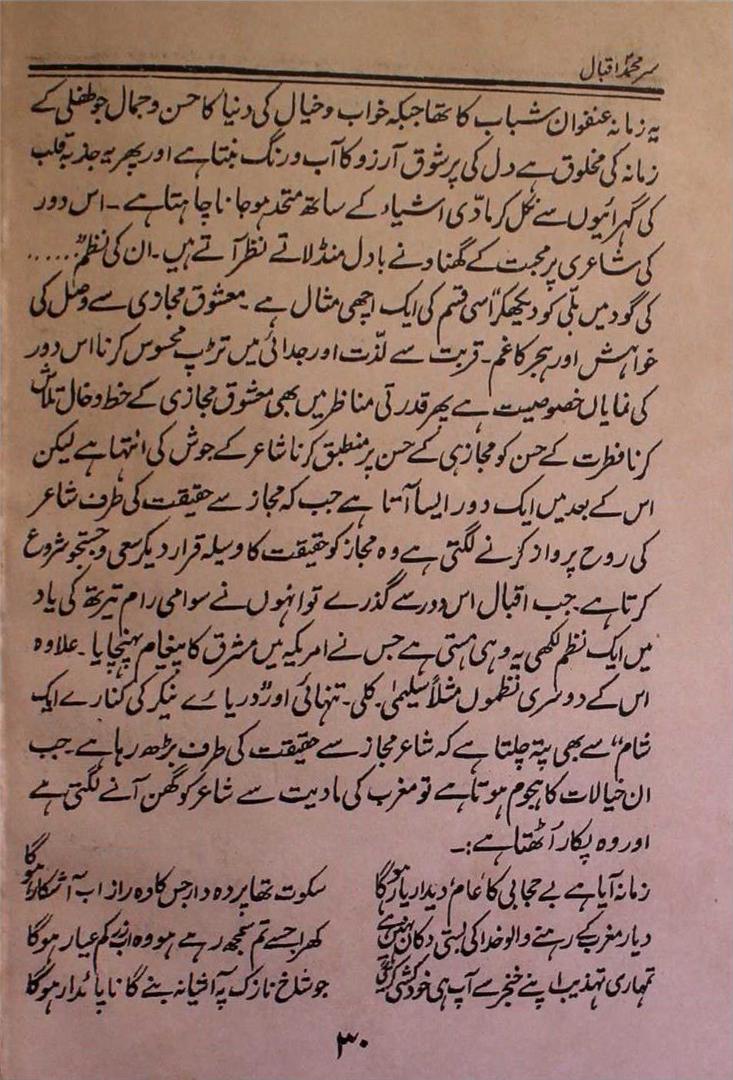 سر محمد اقبال
یہ زمانہ عنفوان شباب کا تھا جبکہ خواب وخیال کی دنیا کا حسن وجمال جو طفلی کے
زمانہ کی مخلوق ہے دل کی پرشوق آرزو کا آب ورنگ بنتا ہے اور پھر یہ جذبہ قلب
کی گہرائیوں سے نکل کر مادّی اشیاء کے ساتھ متحد ہو جانا چاہتا ہے۔ اس دور
کی شاعری پر محبت کے گھناونے بادل منڈلاتے نظر آتے ہیں۔ ان کی نظم "......
کی گود میں بلّی کو دیکھکر" اسی قسم کی ایک اچھی مثال ہے۔ معشوق مجازی سے وصل کی
خواہش اور ہجر کا غم۔ قربت سے لذّت اور جدائی میں تڑپ محسوس کرنا اس دور
کی نمایاں خصوصیت ہے پھر قدرتی مناظر میں بھی معشوق مجازی کے خط وخال تلاش
کرنا فطرت کے حسن کو مجازہی کے حسن پر منطبق کرنا شاعر کے جوش کی انتہا ہے لیکن
اس کے بعد میں ایک دور ایسا آتا ہے جب کہ مجاز سے حقیقت کی طرف شاعر
کی روح پرواز کرنے لگتی ہے وہ مجاز کو حقیقت کا وسیلہ قرار دیکر سعی وجستجو شروع
کرتا ہے۔ جب اقبال اس دور سے گذرے تو انہوں نے سوامی رام تیرتھ کی یاد
میں ایک نظم لکھی یہ وہی ہستی ہے جس نے امریکہ میں مشرق کا پیغام پہنچایا۔ علاوہ
اس کے دوسری نظموں مثلاً سلیمٰی۔ کلی۔ تنہائی اور "دریائے نیکر کی کنارے ایک
شام" سے بھی پتہ چلتا ہے کہ شاعر مجاز سے حقیقت کی طرف بڑھ رہا ہے۔ جب
ان خیالات کا ہجوم ہوتا ہے تو مغرب کی مادیت سے شاعر کو گھن آنے لگتی ہے
اور وہ پکار اُٹھتا ہے:۔
زمانہ آیا ہے بے حجابی کا عام دیدار یار ہوگا سکوت تھا پردہ دار جس کا وہ راز اب آشکار ہوگا
دیار مغرب کے رہنے والو خدا کی بستی دکاں نہیں ہے کھرا جسے تم سمجھ رہے ہو وہ اب زر کم عیار ہوگا
تمہاری تہذیب اپنے خنجر سے آپ ہی خود کشی کرے گی جو شاخ نازک پہ آشیانہ بنے گا ناپائدار ہوگا
۳۰